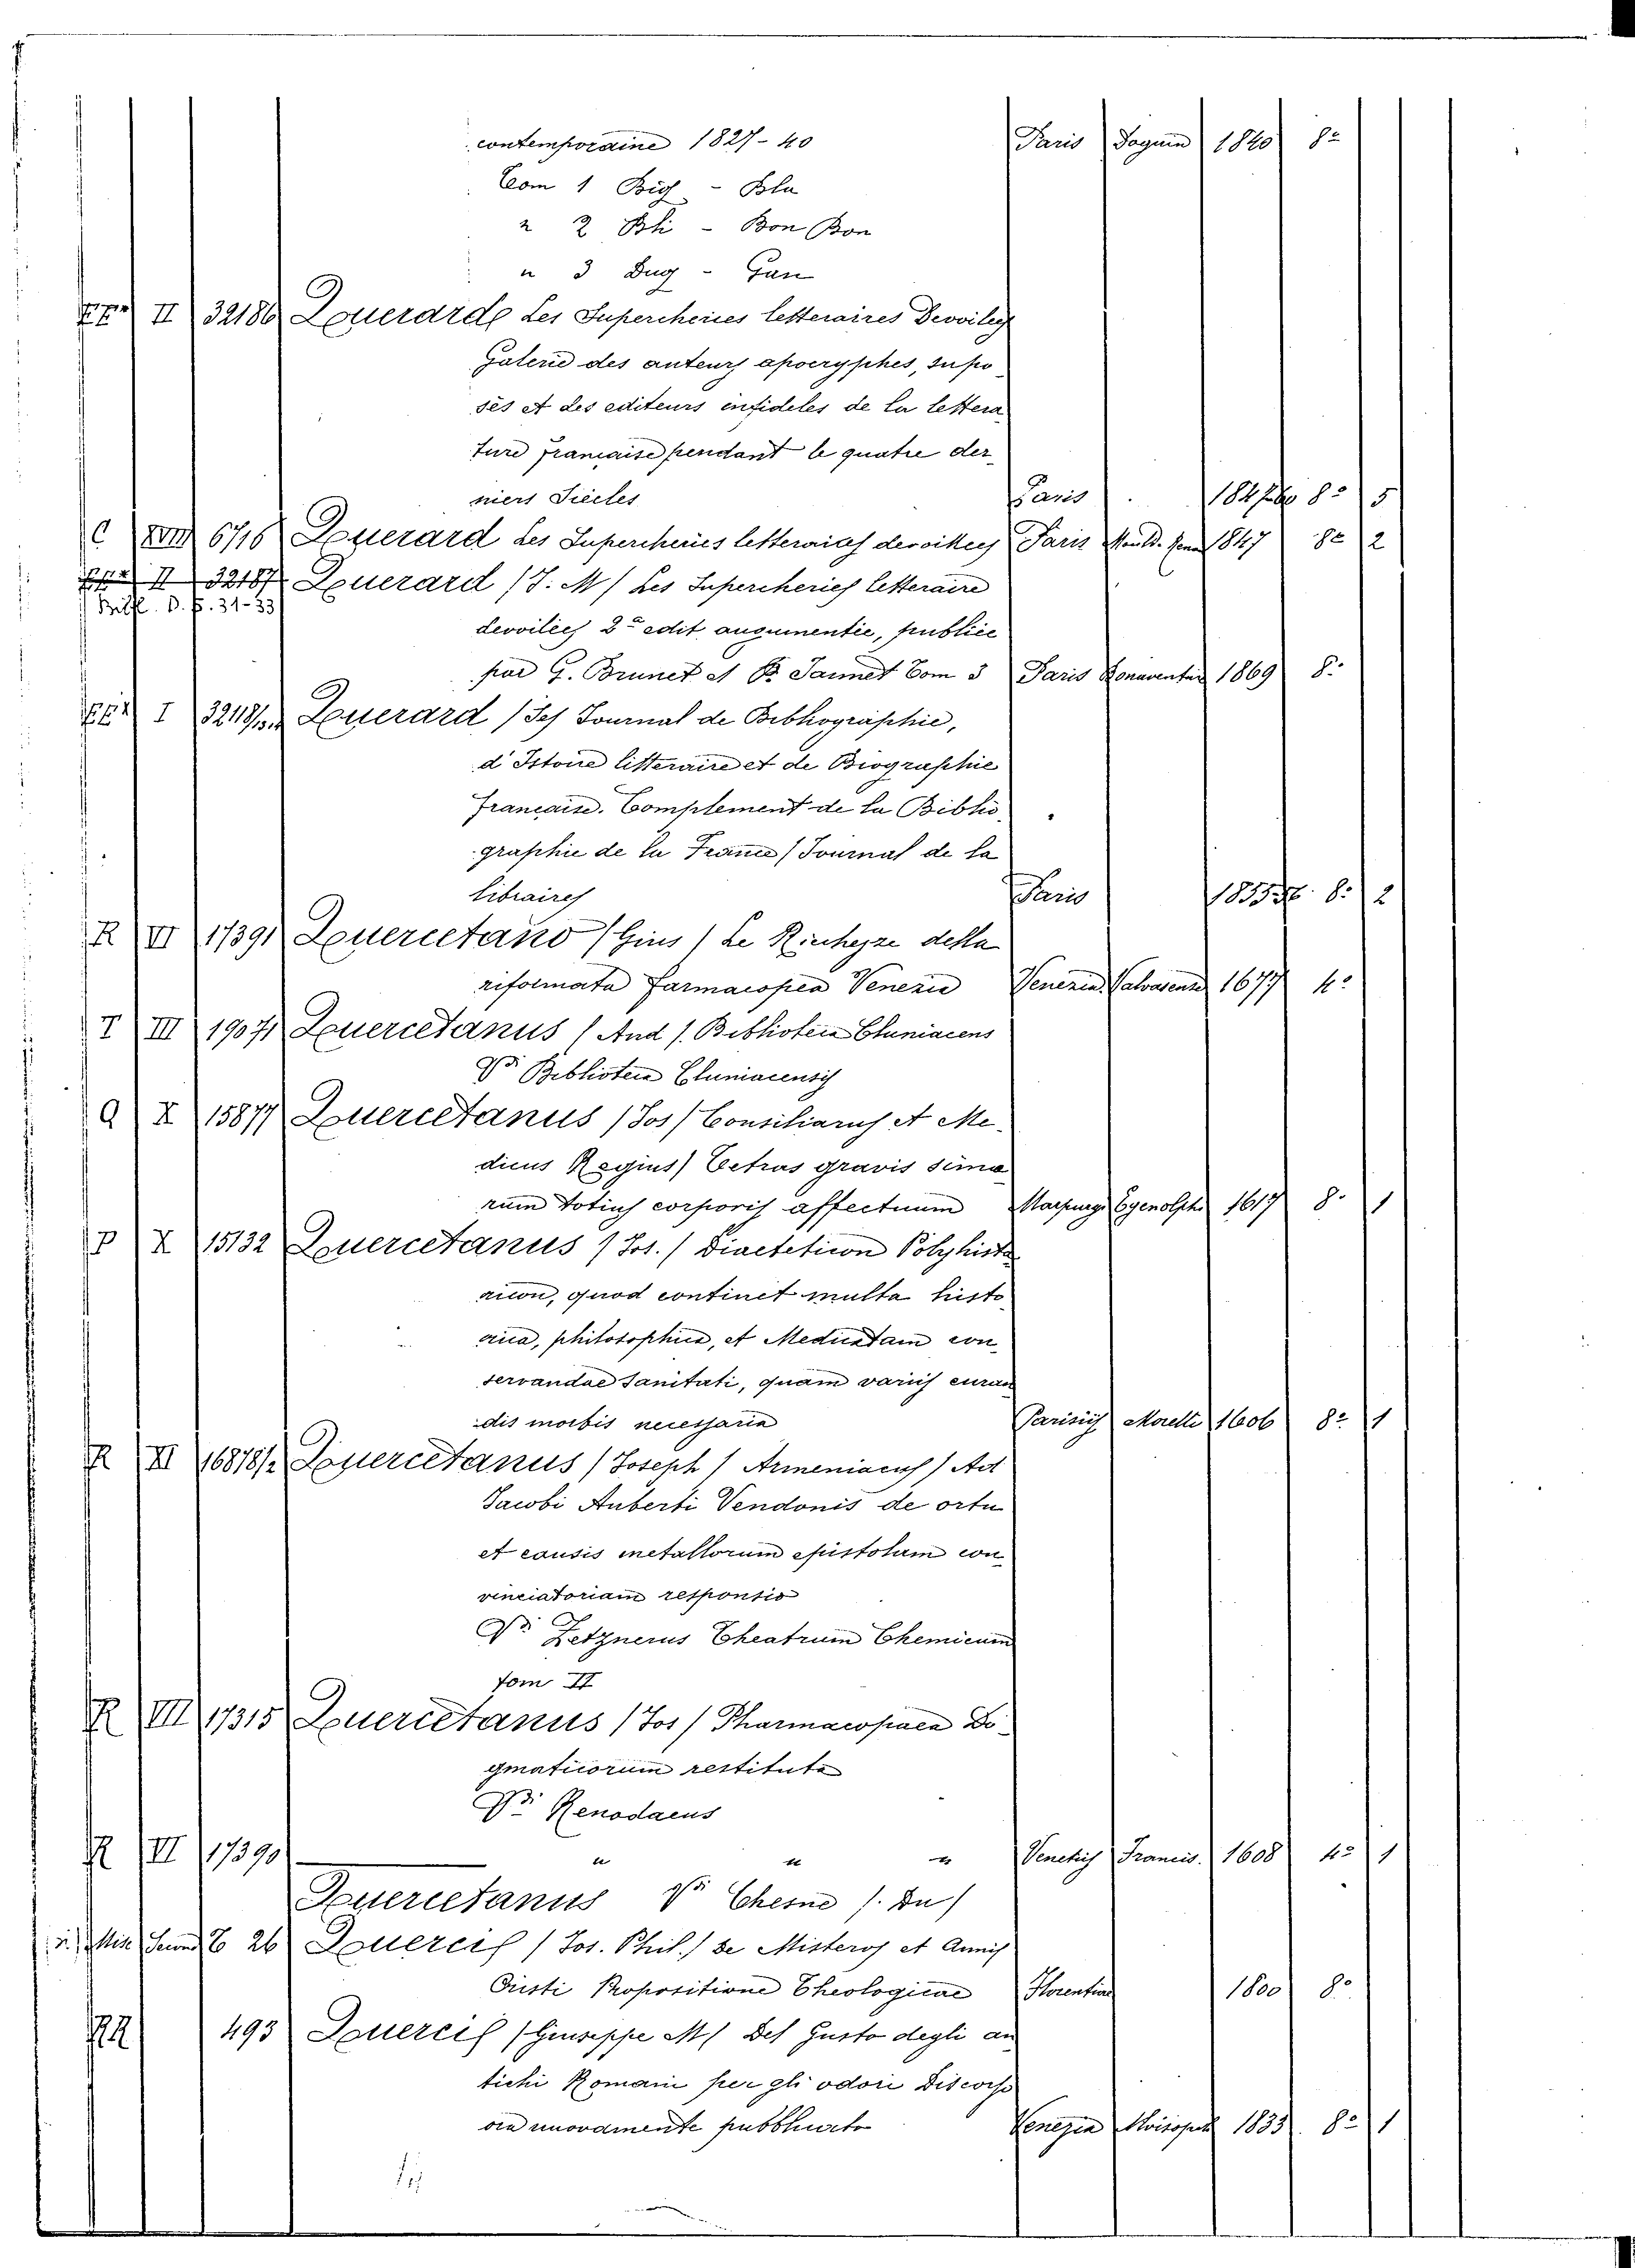 contemporaine 1827-40 Paris 1840 8º
Tom 1 Big - Bla
" 2 Bli - Bon Bon
" 3 Dug - Gan
II 32186 Querard Les Supercheries letteraires Devoiley
Galerie des auteurs apocryphes, supo
sés et des editeurs infideles de la lettera
ture française pendant le quatre der
niers Siecles Paris 1847 8º 5
C XVII 6716 Querard les Supercheries letteraies devoilees Paris 1847 8º 2
II 32187 Querard (J. M) Les Supercheries letteraire
Bibl. D. F. 31-33
devoilees 2º edit augumentée, publiée
par G. Brunet et P. Jannet Tom 3 Paris 1869 8º
I Querard (Le) Journal de Bibliographie,
d'Istoire litteraire et de Biographie
française. Complement de la Biblio
graphie de la France (Journal de la
libraires Paris 8º 2
R VI 17391 Quercetano (Gius) Le Richezze della
riformata farmacopea Venezia Venezia Valvasense 1677 4º
T III 19071 Quercetanus (And). Biblioteca Cluniacens
Vi Biblioteca Cluniacensis
Q X 15877 Quercetanus (Jos) Consiliarius et Me
dicus Regius) Tetras gravissima
rum totius corporis affectuum Marpurgi Egenolphi 1617 8º 1
P X 15132 Quercetanus (Jos.) Diaeteticon Polyhisto
ricon, quod continet multa histo
rica, philosophica, et Medica tam con
servandae Sanitati, quam variis curan
dis morbis necessaria Parisiis Morelli 1606 8º 1
R XI 16878/2 Quercetanus (Joseph) Armeniacus) Ad
Jacobi Auberti Vendonis de ortu
et causis metallorum epistolam con
vinciatoriam responsio
Vi Zetznerus Theatrum Chemicum
tom II
R VII 17315 Quercetanus (Jos) Pharmacopaea Do
gmaticorum restituta
Vi Renodaeus
R VII 17390 " " " Venetiis Francis. 1608 4º 1
Quercetanus Vi Chesne (Du)
26 Querci (Jos. Phil.) De Misteros et Annis
Cristi Propositione Theologicae Florentiae 1800 8º
RR 493 Querci (Giuseppe M) Del Gusto degli an
tichi Romani per gli odori Discorso
ora nuovamente pubblicato Venezia 1833 8º 1